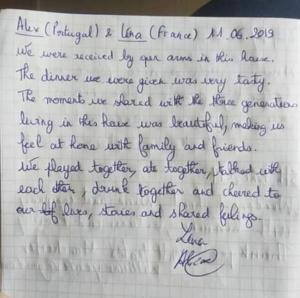 Alex (Portugal) & Léna (France) 11.06.2019
We were received by open arms in this house.
The dinner we were given was very tasty.
The moments we shared with the three generations
living in this house was beautiful, making us
feel at home with family and friends.
We played together, ate together, talked with
each other, drunk together and cheered to
our lives, stories and shared feelings.
Léna